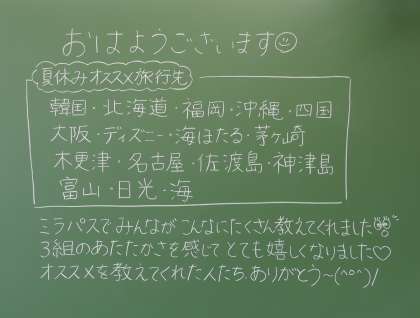 おはようございます☺
夏休みオススメ旅行先
韓国・北海道・福岡・沖縄・四国
大阪・ディズニー・海ほたる・茅ヶ崎
木更津・名古屋・佐渡島・神津島
富山・日光・海
ミラパスでみんながこんなにたくさん教えてくれました
3組のあたたかさを感じてとても嬉しくなりました♡
オススメを教えてくれた人たち、ありがとう~(^o^)/